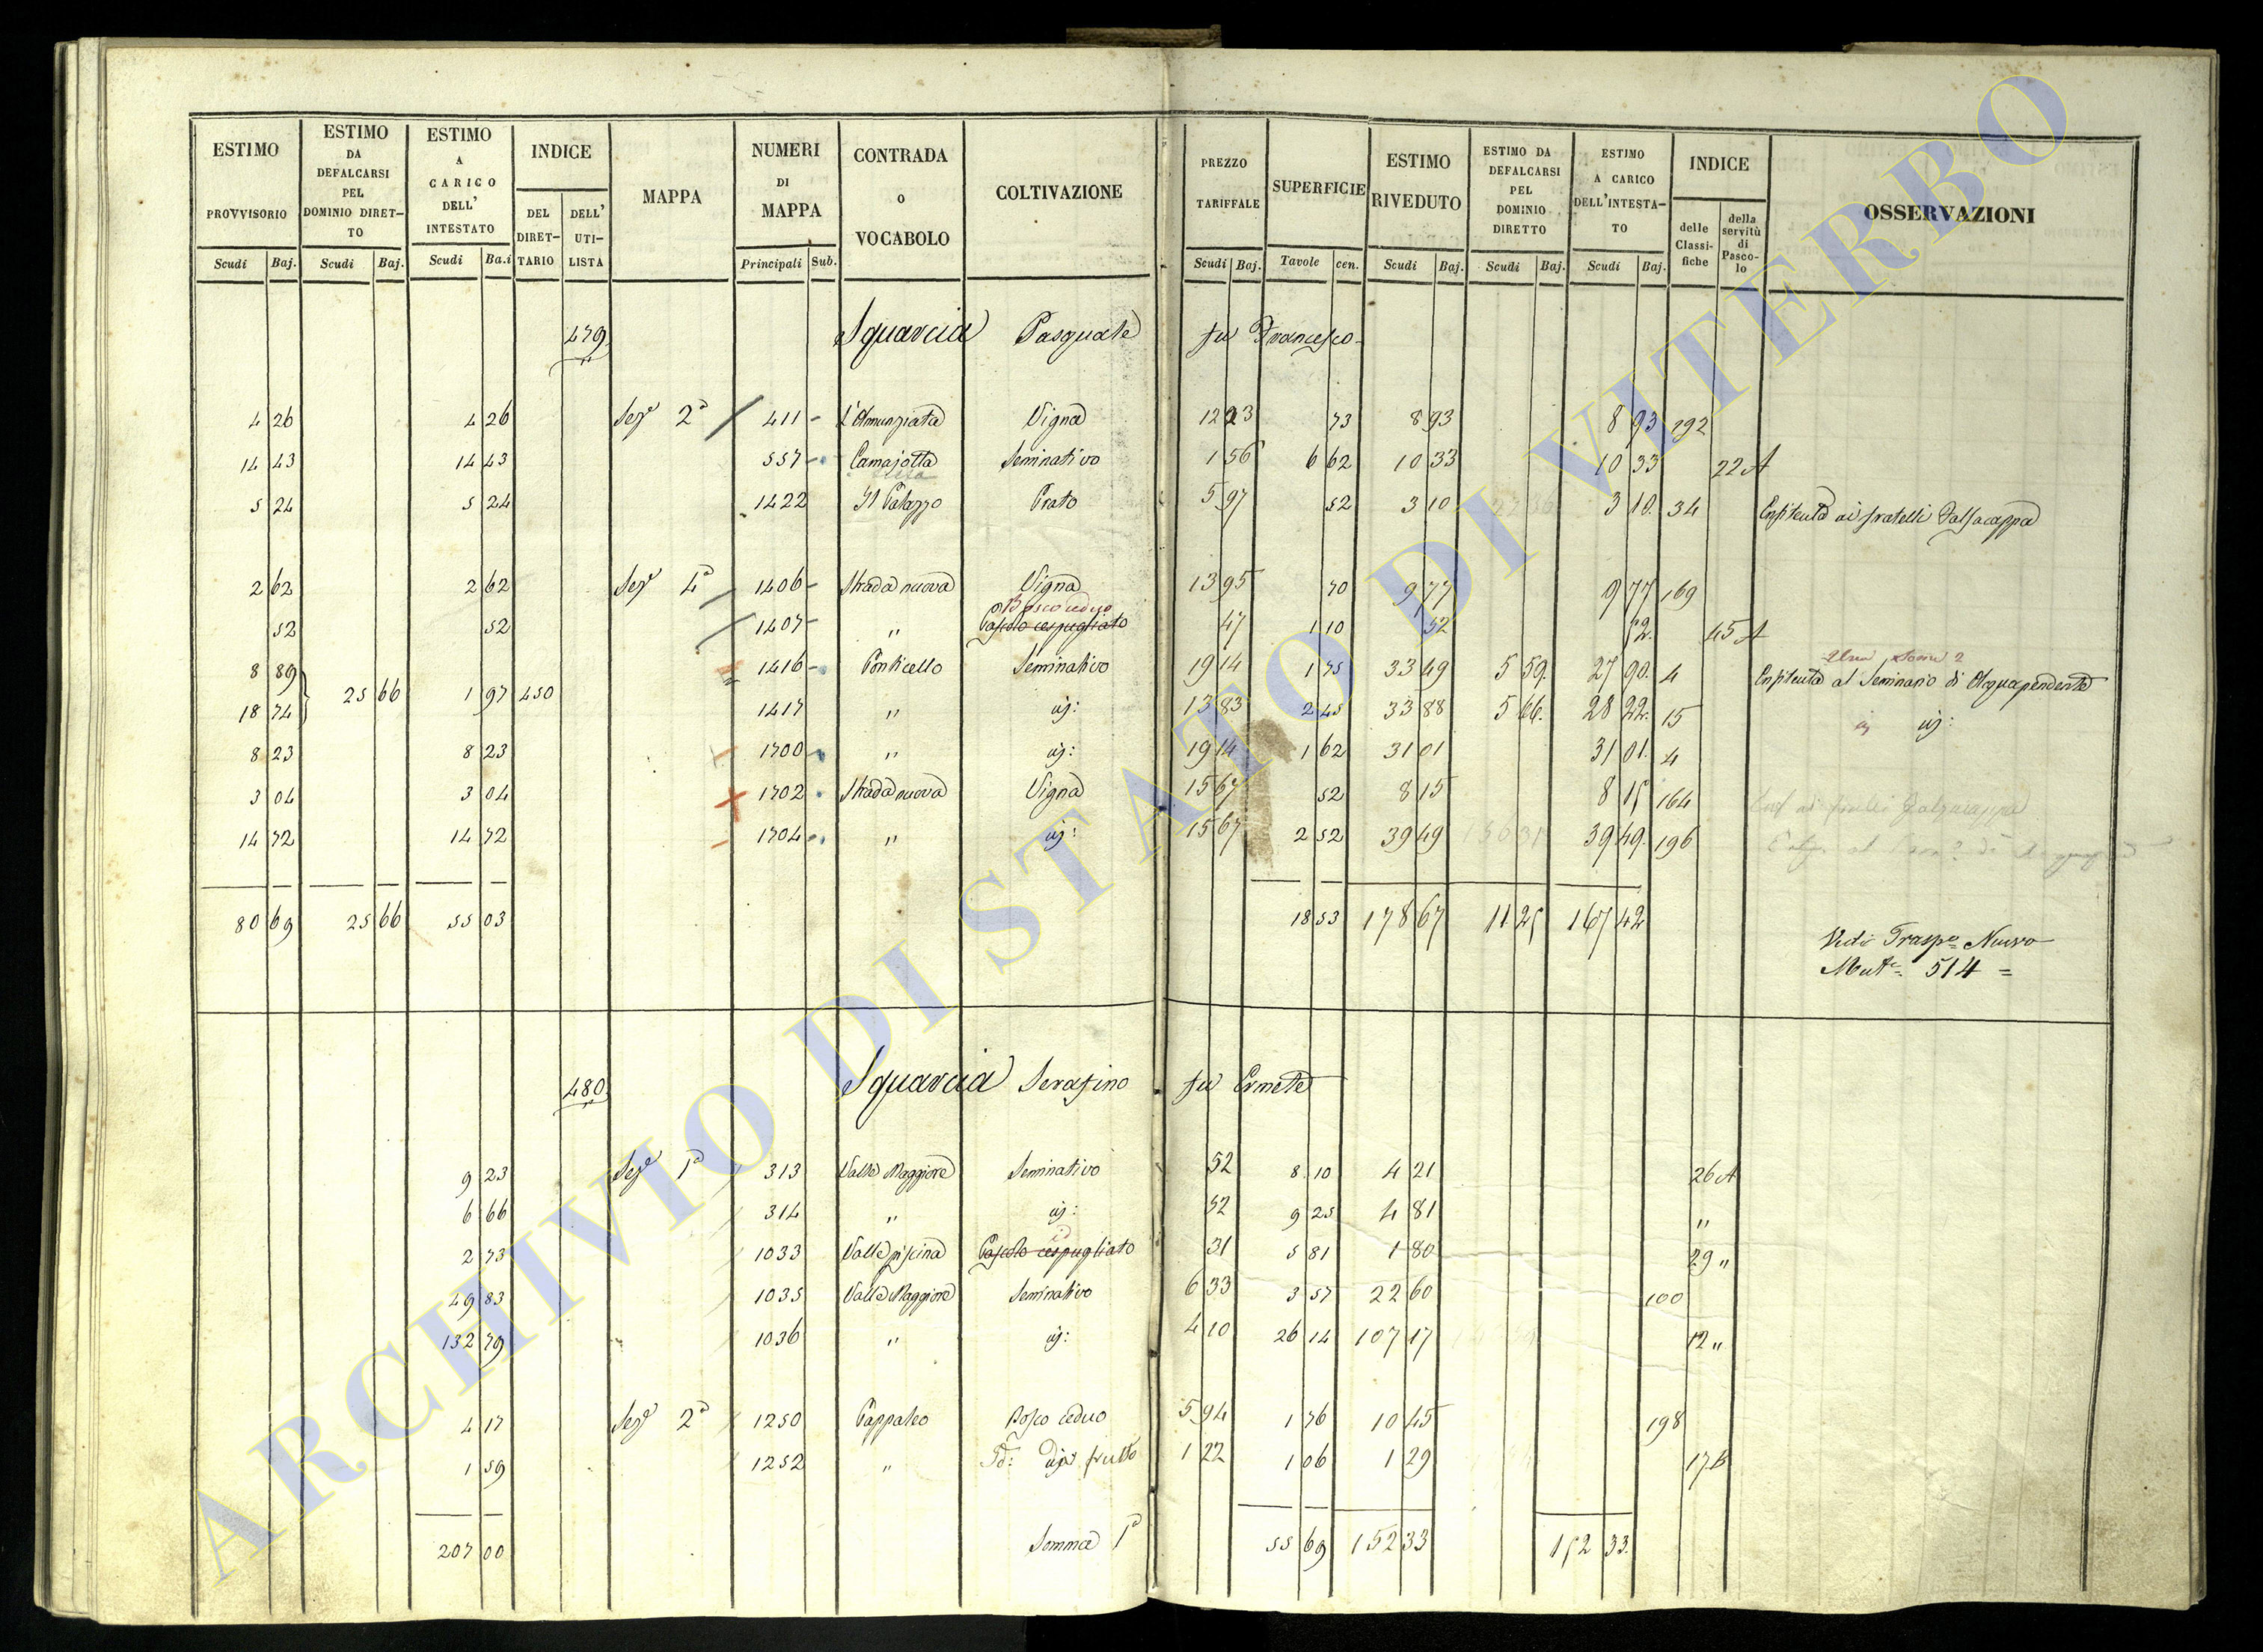 ESTIMO PROVVISORIO | ESTIMO DA DEFALCARSI PEL DOMINIO DIRETTO | ESTIMO A CARICO DELL' INTESTATO | INDICE | MAPPA | NUMERI DI MAPPA | CONTRADA O VOCABOLO | COLTIVAZIONE | PREZZO TARIFFALE | SUPERFICIE | ESTIMO RIVEDUTO | ESTIMO DA DEFALCARSI PEL DOMINIO DIRETTO | ESTIMO A CARICO DELL'INTESTATO | INDICE | OSSERVAZIONI
DEL DIRETTARIO | DELL' UTILISTA | delle Classifiche | della servitù di Pascolo
Scudi Baj. | Scudi Baj. | Scudi Ba.i | Principali Sub. | Scudi Baj. | Tavole cen. | Scudi Baj. | Scudi Baj. | Scudi Baj.
479 Squarcia Pasquale fu Francesco
4 26 | 4 26 | Sez.e 2a | 411 | L'Annunziata | Vigna | 12 23 | 73 | 8 93 | 8 93 | 192
14 43 | 14 43 | 557 | Camajotta | Seminativo | 1 56 | 6 62 | 10 33 | 10 33 | 22 A
5 24 | 5 24 | 1422 | Il Palazzo | Prato | 5 97 | 52 | 3 10 | 3 10. | 34 | Enfiteuta ai fratelli Falsacappa
2 62 | 2 62 | Sez.e 4a | 1406 | Strada nuova | Vigna | 13 95 | 70 | 9 77 | 9 77 | 169
Bosco ceduo
52 | 52 | 1407 | " | Pascolo cespugliato | 47 | 1 10 | 52 | 52. | 45 A
8 89 | 1416 | Ponticello | Seminativo | 19 14 | 1 75 | 33 49 | 5 59. | 27 90. | 4 | Enfiteuta al Seminario di Acquapendente
25 66 | 1 97 | 450
18 74 | 1417 | " | id: | 13 83 | 2 45 | 33 88 | 5 66. | 28 22. | 15 | id:
8 23 | 8 23 | 1700 | " | id: | 19 14 | 1 62 | 31 01 | 31 01. | 4
3 04 | 3 04 | 1702 | Strada nuova | Vigna | 15 67 | 52 | 8 15 | 8 15 | 164
14 72 | 14 72 | 1704 | " | id: | 15 67 | 2 52 | 39 49 | 39 49. | 196
80 69 | 25 66 | 55 03 | 18 53 | 178 67 | 11 25 | 167 42
Vedi Traspo Nuovo
Mute. 514 =
480. Squarcia Serafino fu Ermete
9 23 | Sez.e 1a | 313 | Valle Maggiore | Seminativo | 52 | 8 10 | 4 21 | 26 A
6 66 | 314 | " | id: | 52 | 9 25 | 4 81 | "
2 73 | 1033 | Valle piscina | Pascolo cespugliato | 31 | 5 81 | 1 80 | 29 "
49 83 | 1035 | Valle Maggiore | Seminativo | 6 33 | 3 57 | 22 60 | 100
132 79 | 1036 | " | id: | 4 10 | 26 14 | 107 17 | 12 "
4 17 | Sez.e 2a | 1250 | Pappaleo | Bosco ceduo | 5 94 | 1 76 | 10 45 | 198
1 59 | 1252 | " | Id: da frutto | 1 22 | 1 06 | 1 29 | 17.B
207 00 | Somma 1a | 55 69 | 152 33 | 152 33.
ARCHIVIO DI STATO DI VITERBO